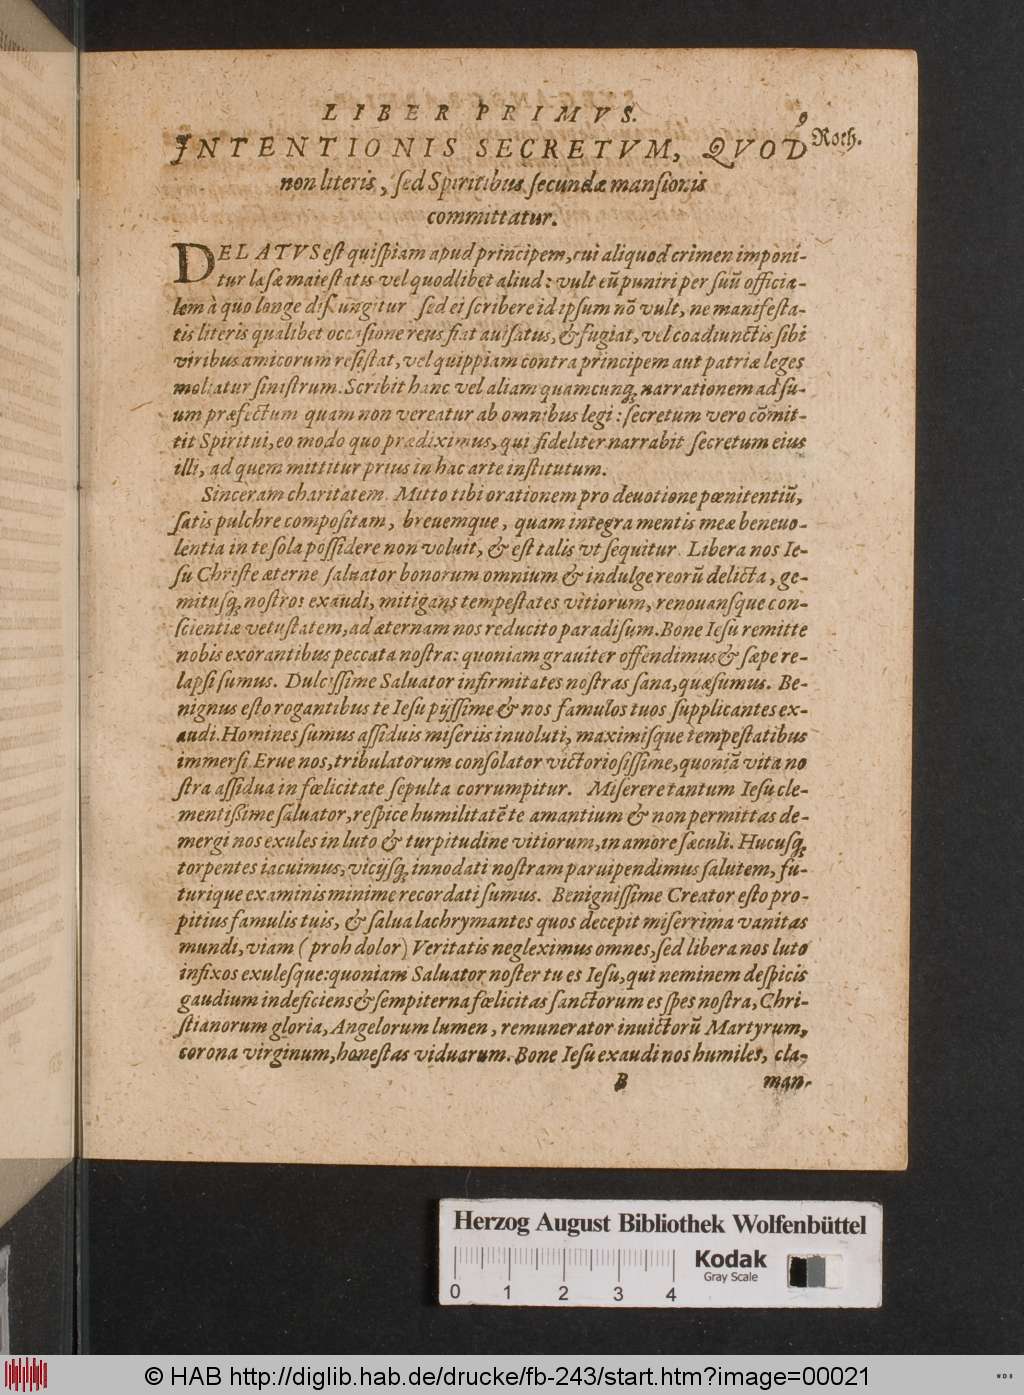 LIBER PRIMVS. 9
INTENTIONIS SECRETVM, QVOD Roth.
non literis, sed Spiritibus secundæ mansionis
committatur.
DELATVS est quispiam apud principem, cui aliquod crimen imponi-
tur læsæ maiestatis vel quodlibet aliud: vult eũ puniri per suũ officia-
lem à quo longe disiungitur sed ei scribere id ipsum nõ vult, ne manifesta-
tis literis qualibet occasione reus fiat auisatus, & fugiat, vel coadiunctis sibi
viribus amicorum resistat, vel quippiam contra principem aut patriæ leges
moliatur sinistrum. Scribit hanc vel aliam quamcunq; narrationem ad su-
um præfectum quam non vereatur ab omnibus legi: secretum vero cõmit-
tit Spiritui, eo modo quo prædiximus, qui fideliter narrabit secretum eius
illi, ad quem mittitur prius in hac arte institutum.
Sinceram charitatem. Mitto tibi orationem pro deuotione pœnitentiũ,
satis pulchre compositam, breuemque, quam integra mentis meæ beneuo-
lentia in te sola possidere non voluit, & est talis vt sequitur. Libera nos Ie-
su Christe æterne saluator bonorum omnium & indulge reorũ delicta, ge-
mitusq; nostros exaudi, mitigans tempestates vitiorum, renouansque con-
scientiæ vetustatem, ad æternam nos reducito paradisum. Bone Iesu remitte
nobis exorantibus peccata nostra: quoniam grauiter offendimus & sæpe re-
lapsi sumus. Dulcissime Saluator infirmitates nostras sana, quæsumus. Be-
nignus esto rogantibus te Iesu pijssime & nos famulos tuos supplicantes ex-
audi. Homines sumus assiduis miseriis inuoluti, maximisque tempestatibus
immersi Erue nos, tribulatorum consolator victoriosissime, quoniã vita no
stra assidua in fœlicitate sepulta corrumpitur. Miserere tantum Iesu cle-
mentißime saluator, respice humilitatẽ te amantium & non permittas de-
mergi nos exules in luto & turpitudine vitiorum, in amore sæculi. Hucusq;
torpentes iacuimus, vicijsq; innodati nostram paruipendimus salutem, fu-
turique examinis minime recordati sumus. Benignissime Creator esto pro-
pitius famulis tuis, & salua lachrymantes quos decepit miserrima vanitas
mundi, viam (proh dolor) Veritatis negleximus omnes, sed libera nos luto
infixos exulesque: quoniam Saluator noster tu es Iesu, qui neminem despicis
gaudium indeficiens & sempiterna fœlicitas sanctorum es spes nostra, Chri-
stianorum gloria, Angelorum lumen, remunerator inuictorũ Martyrum,
corona virginum, honestas viduarum. Bone Iesu exaudi nos humiles, cla-
B man-
Herzog August Bibliothek Wolfenbüttel
0 1 2 3 4
Kodak
Gray Scale
© HAB http://diglib.hab.de/drucke/fb-243/start.htm?image=00021